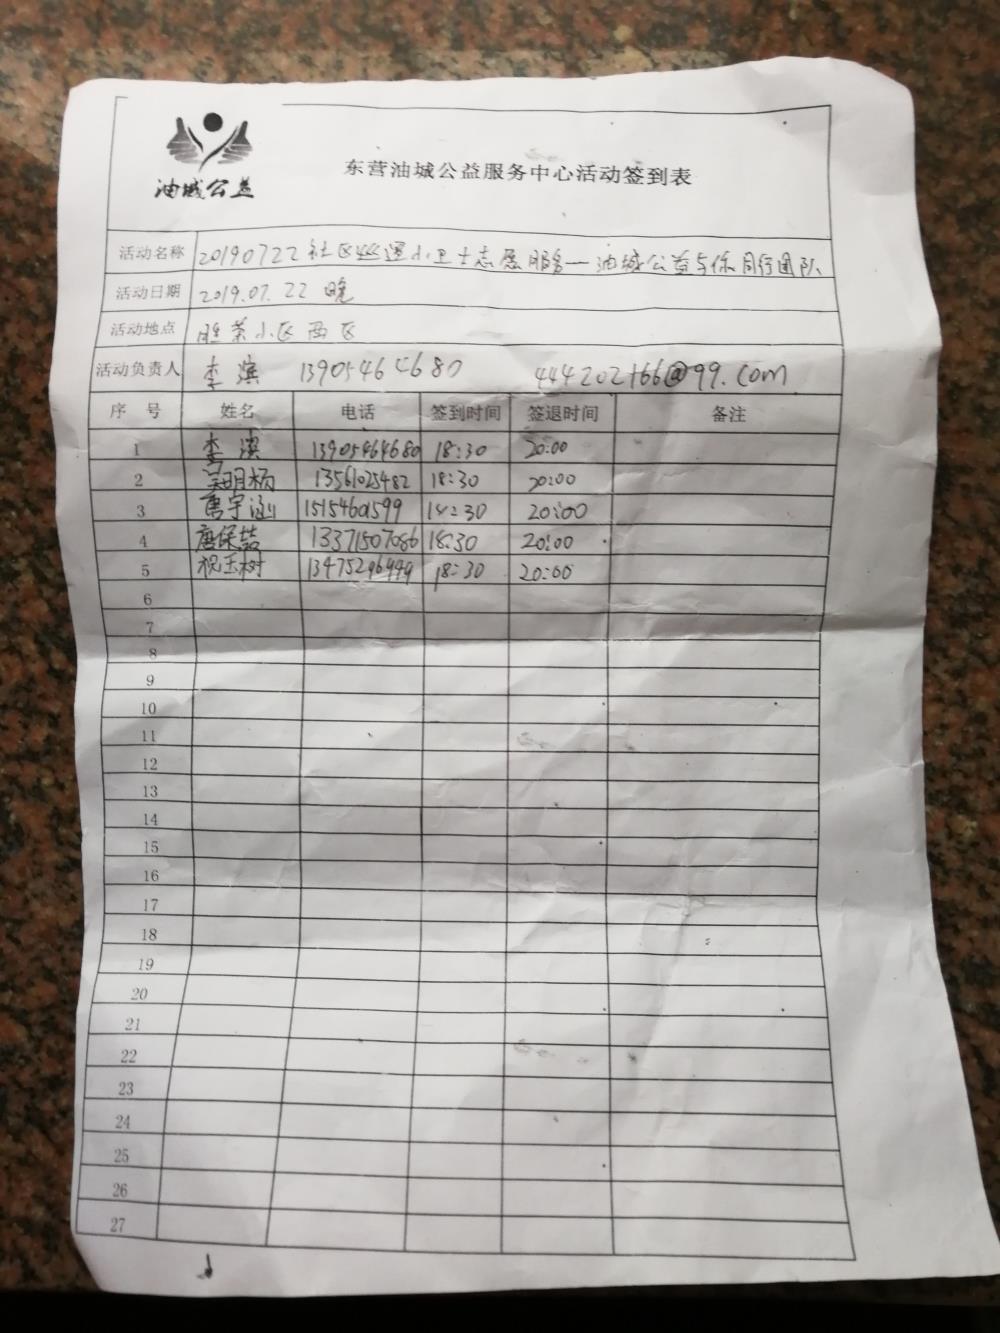 油城公益
东营油城公益服务中心活动签到表
活动名称 20190722社区巡逻小卫士志愿服务—油城公益与你同行团队
活动日期 2019.07.22 晚
活动地点 胜莱小区西区
活动负责人 李滨 13905464680 444202166@99.com
序 号 姓名 电话 签到时间 签退时间 备注
1 李滨 13905464680 18:30 20:00
2 吴明杨 13561025482 18:30 20:00
3 唐宇涵 15154601599 18:30 20:00
4 唐保喆 13371507086 18:30 20:00
5 祝玉树 13475296999 18:30 20:00
6
7
8
9
10
11
12
13
14
15
16
17
18
19
20
21
22
23
24
25
26
27